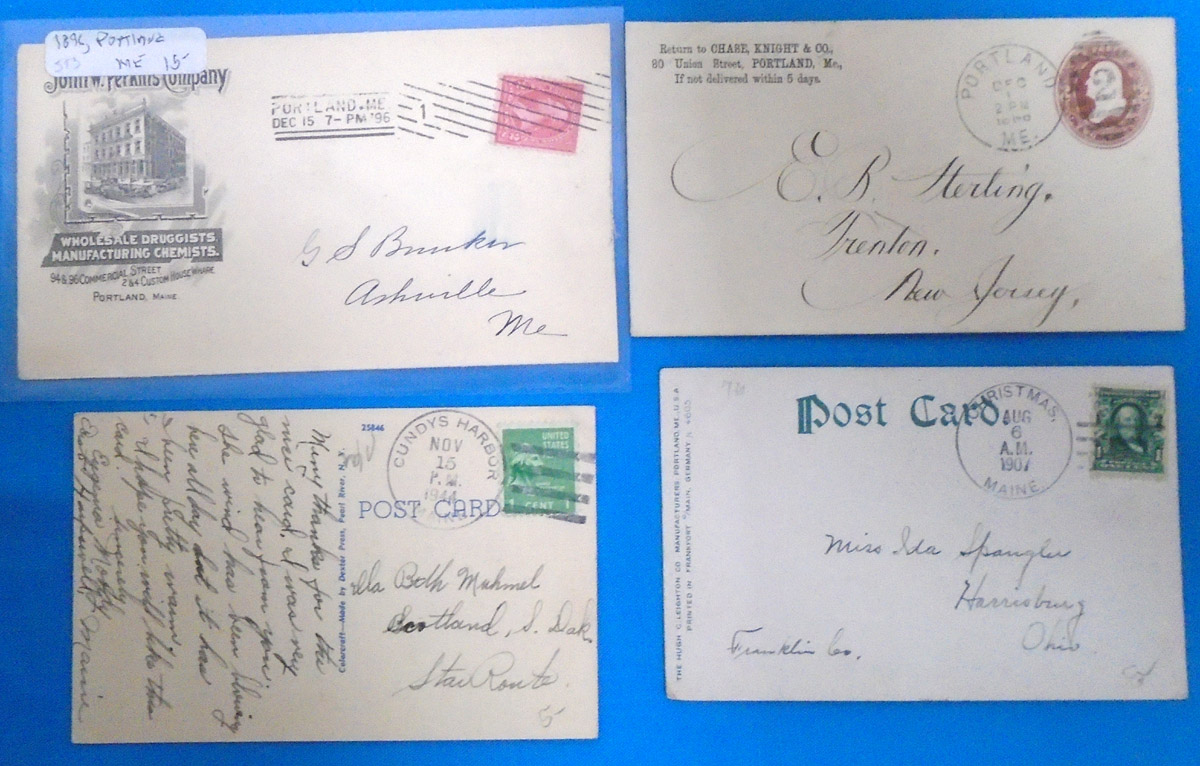 1896 Portland
ME 15-
John W. Perkins Company
WHOLESALE DRUGGISTS
MANUFACTURING CHEMISTS.
94 & 96 COMMERCIAL STREET
2 & 4 CUSTOM HOUSE WHARF
PORTLAND, MAINE.
PORTLAND, ME.
DEC 15 7-PM '96
1
G S Bunker
Ashville
Me
Return to CHASE, KNIGHT & CO.,
80 Union Street, PORTLAND, Me.,
If not delivered within 5 days.
PORTLAND
DEC
2 PM
ME.
2
E. B. Sterling.
Trenton.
New Jersey.
Many thanks for the
nice card. I was very
glad to hear from you.
The wind has been blowing
here all day but it has
been
I hope you will like this
card.
Sincerely
Maine
25846
Colorcraft—Made by Dexter Press, Pearl River, N.Y.
CUNDYS HARBOR
NOV
15
P.M.
1944
UNITED
STATES
1 CENT 1
POST CARD
Ella Beth Muhmel
Scotland, S. Dak.
Star Route.
5-
THE HUGH C. LEIGHTON CO. MANUFACTURERS, PORTLAND, ME., U.S.A.
PRINTED IN FRANKFORT MAIN, GERMANY
Post Card
CHRISTMAS,
AUG
6
A.M.
1907
MAINE.
Miss Ida Spangler
Harrisburg
Ohio.
Franklin Co.